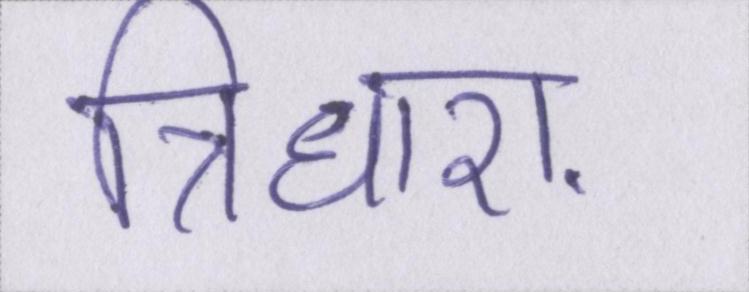 त्रिधारा.